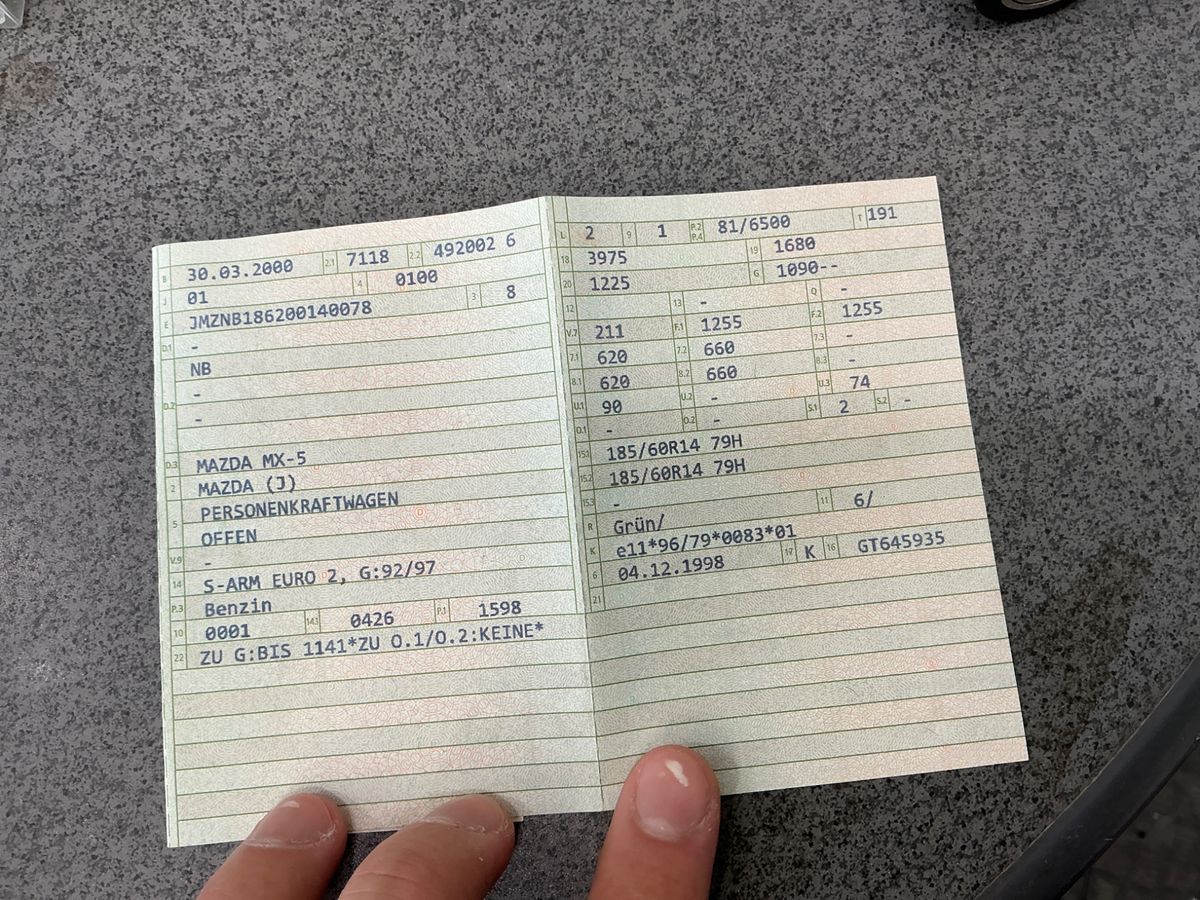 B 30.03.2000 2.1 7118 2.2 492002 6
J 01 4 0100
E JMZNB186200140078 3 8
D.1 -
NB
-
D.2 -
D.3 MAZDA MX-5
2 MAZDA (J)
5 PERSONENKRAFTWAGEN
OFFEN
V.9 -
14 S-ARM EURO 2, G:92/97
P.3 Benzin
10 0001 14.1 0426 P.1 1598
22 ZU G:BIS 1141*ZU O.1/O.2:KEINE*
L 2 9 1 P.2 P.4 81/6500 T 191
18 3975 19 1680
20 1225 G 1090--
12 13 - Q -
V.7 211 F.1 1255 F.2 1255
7.1 620 7.2 660 7.3 -
8.1 620 8.2 660 8.3 -
U.1 90 U.2 - U.3 74
O.1 - O.2 - S.1 2 S.2 -
15.1 185/60R14 79H
15.2 185/60R14 79H
15.3 -
R Grün/ 11 6/
K e11*96/79*0083*01
6 04.12.1998 17 K 16 GT645935
21